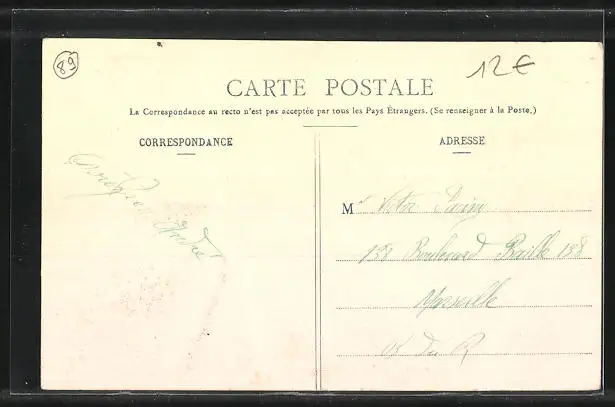 89
12€
CARTE POSTALE
La Correspondance au recto n'est pas acceptée par tous les Pays Étrangers. (Se renseigner à la Poste.)
CORRESPONDANCE
ADRESSE
André
Mr Victor
158 Boulevard Baille 158
Marseille
du R